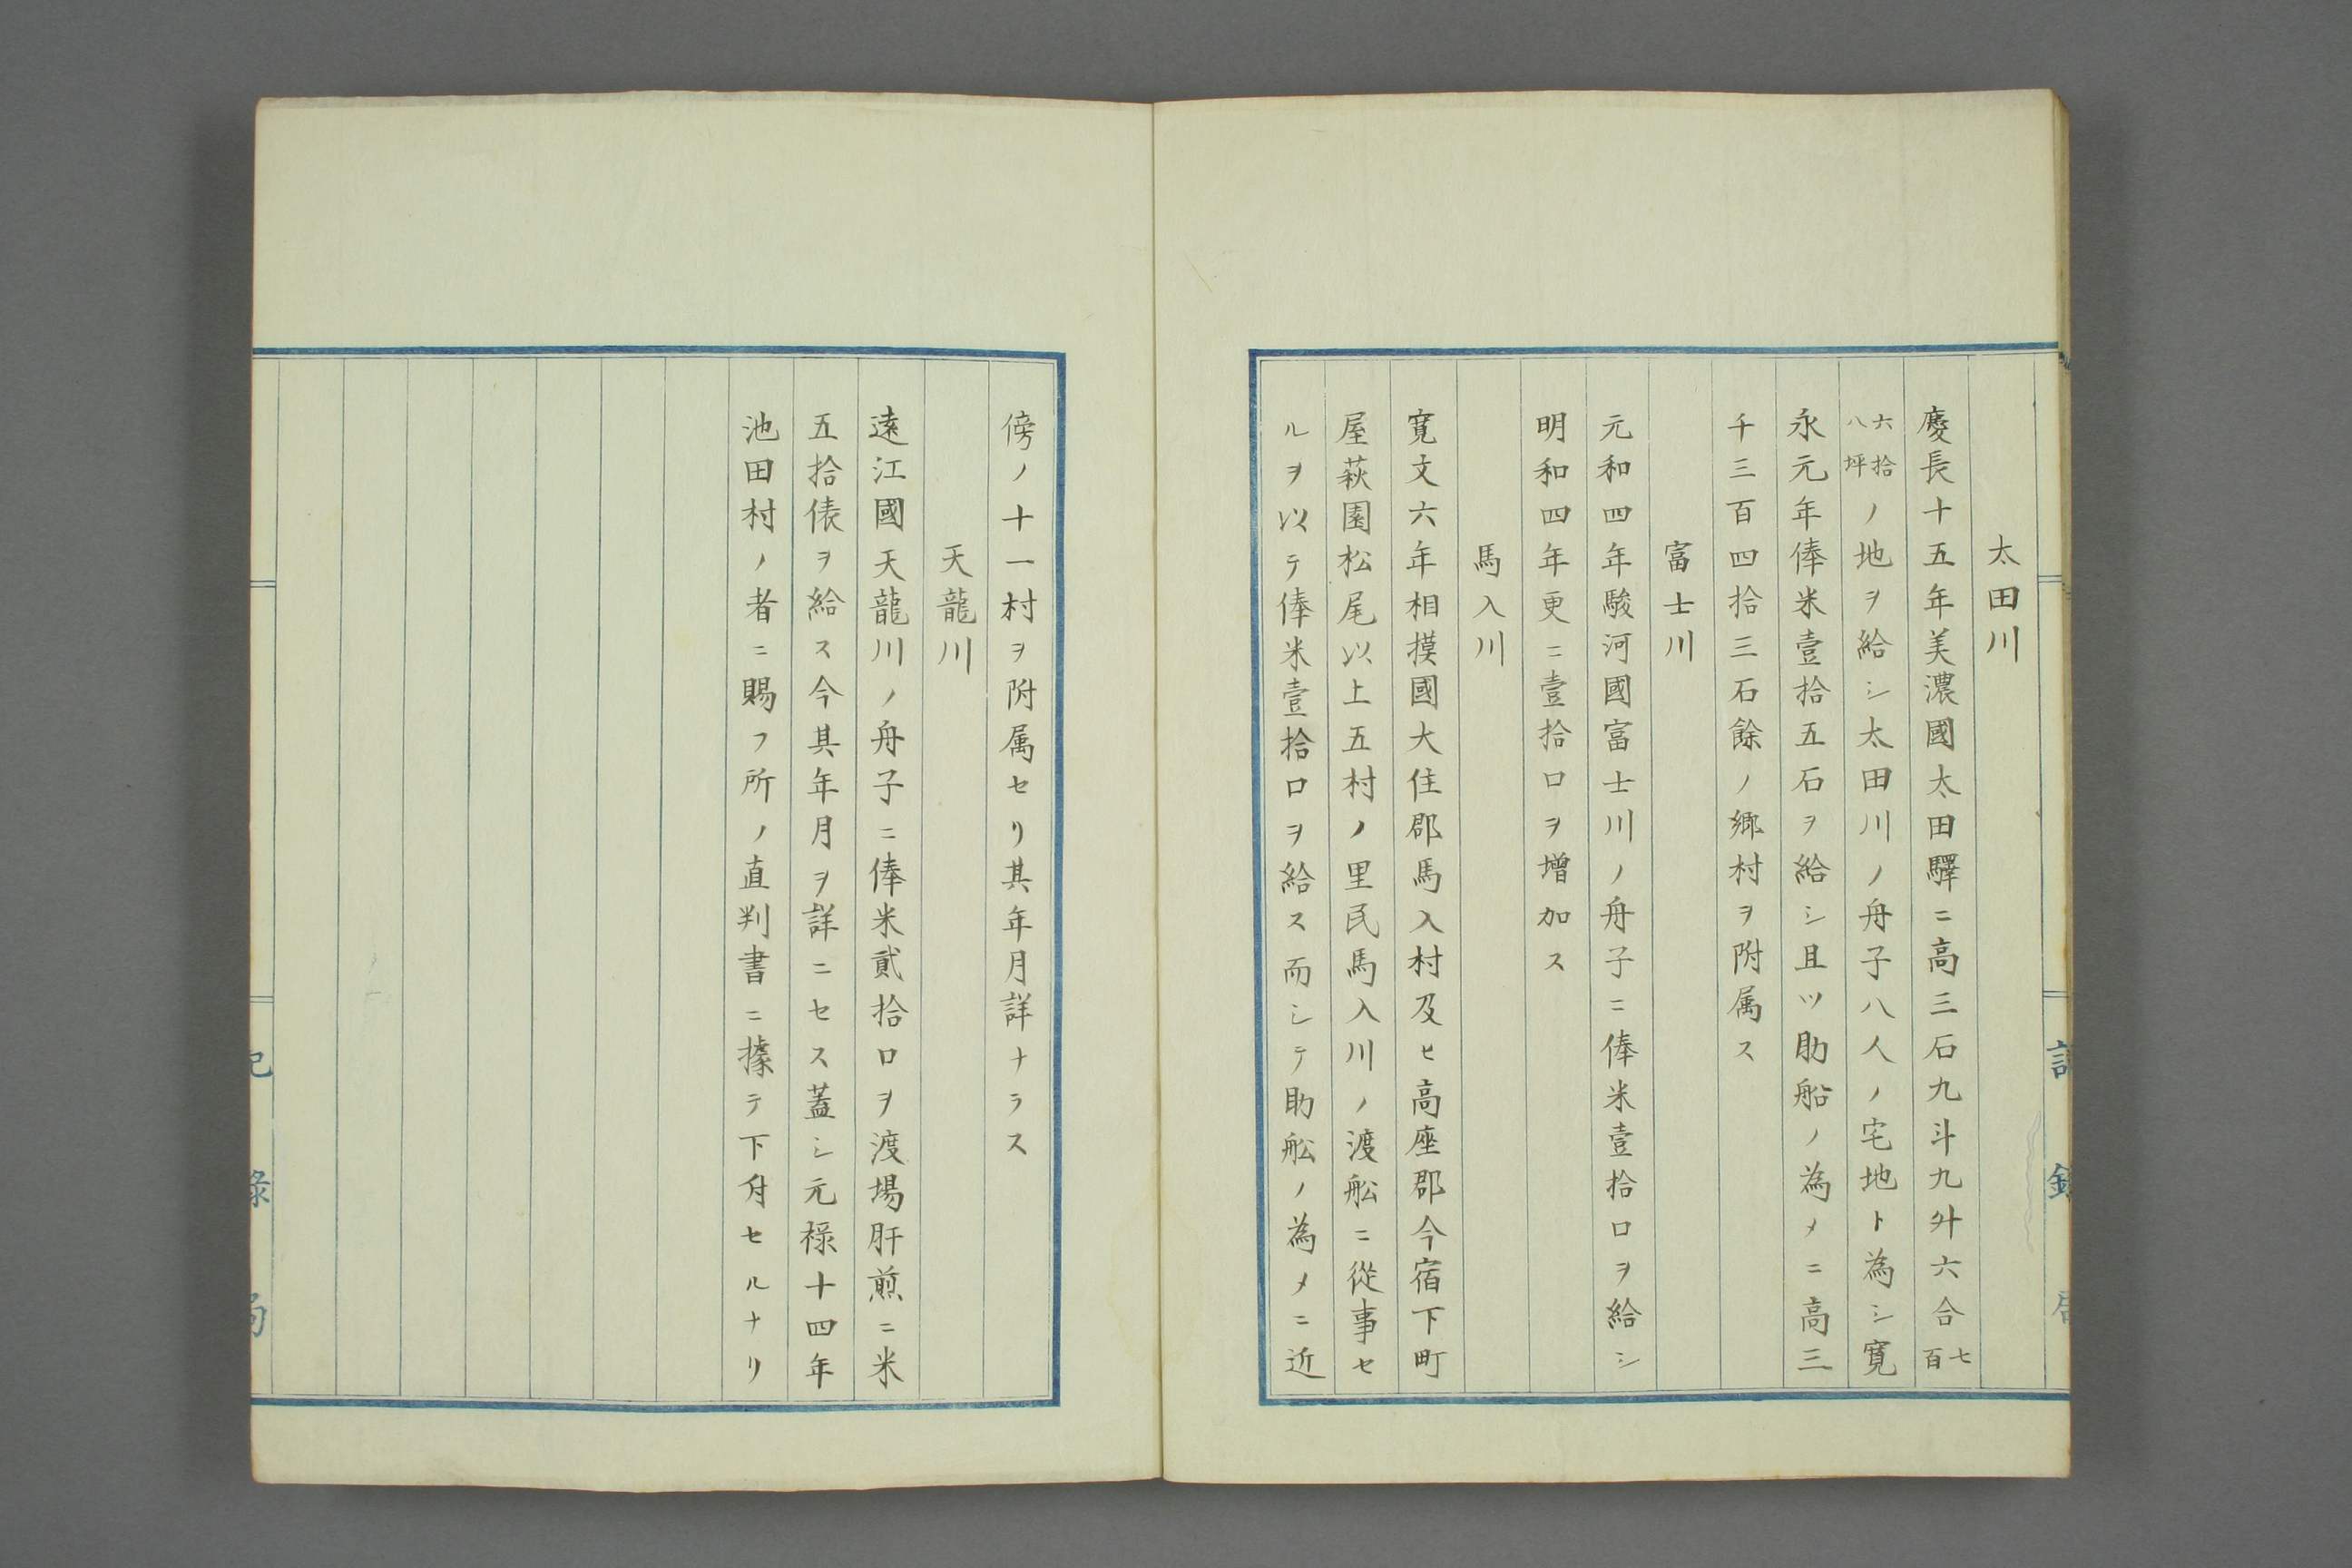 太田川
慶長十五年美濃國太田驛ニ高三石九斗九升六合七百
六拾八坪ノ地ヲ給シ太田川ノ舟子八人ノ宅地ト為シ寛
永元年俸米壹拾五石ヲ給シ且ツ助船ノ為メニ高三
千三百四拾三石餘ノ郷村ヲ附属ス
富士川
元和四年駿河國富士川ノ舟子ニ俸米壹拾口ヲ給シ
明和四年更ニ壹拾口ヲ増加ス
馬入川
寛文六年相摸國大住郡馬入村及ヒ高座郡今宿下町
屋萩園松尾以上五村ノ里民馬入川ノ渡舩ニ從事セ
ルヲ以テ俸米壹拾口ヲ給ス而シテ助舩ノ為メニ近
傍ノ十一村ヲ附属セリ其年月詳ナラス
天龍川
遠江國天龍川ノ舟子ニ俸米貳拾口ヲ渡場肝煎ニ米
五拾俵ヲ給ス今其年月ヲ詳ニセス蓋シ元禄十四年
池田村ノ者ニ賜フ所ノ直判書ニ據テ下付セルナリ
記録局